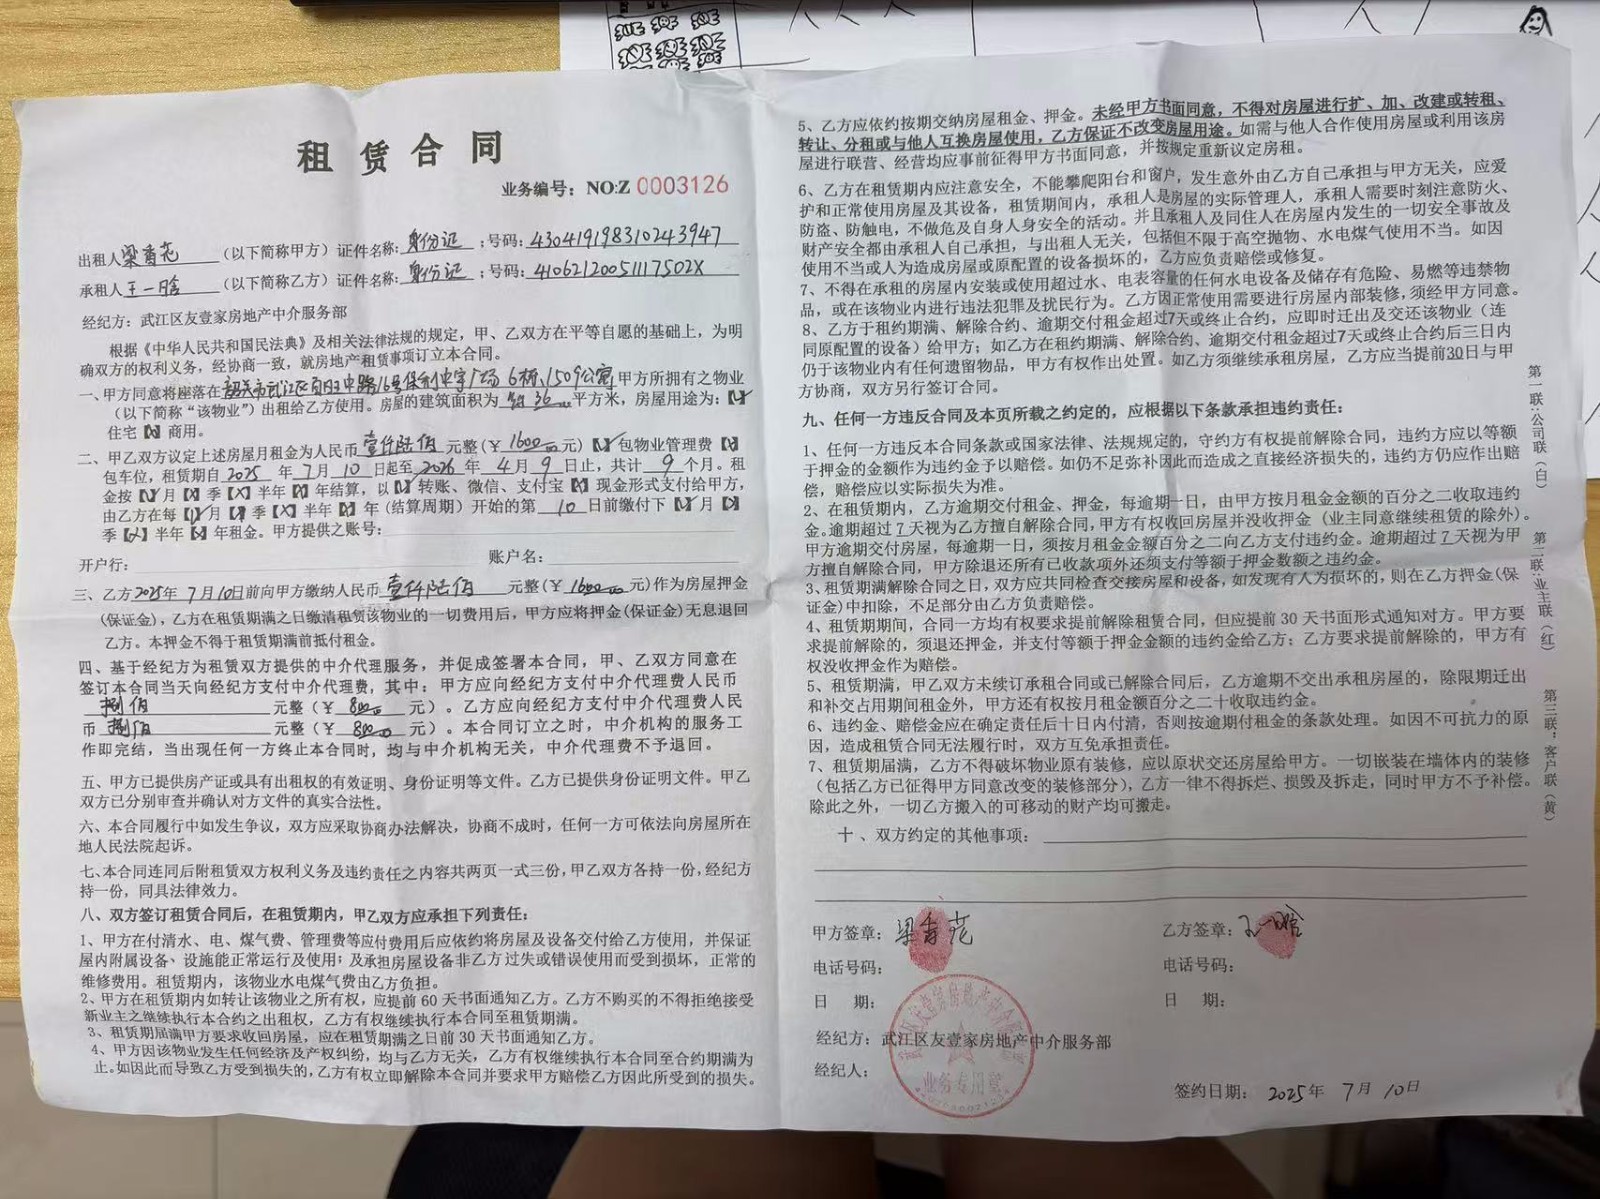 租赁合同
业务编号：NO:Z 0003126
出租人梁香花（以下简称甲方）证件名称：身份证；号码：430419198310243947
承租人王一晗（以下简称乙方）证件名称：身份证；号码：41062120051117502X
经纪方：武江区友壹家房地产中介服务部
根据《中华人民共和国民法典》及相关法律法规的规定，甲、乙双方在平等自愿的基础上，为明
确双方的权利义务，经协商一致，就房地产租赁事项订立本合同。
一、甲方同意将座落在韶关市武江区百旺中路16号保利中宇广场6栋1509公寓甲方所拥有之物业
（以下简称“该物业”）出租给乙方使用。房屋的建筑面积为 36 平方米，房屋用途为：【✓】
住宅【×】商用。
二、甲乙双方议定上述房屋月租金为人民币壹仟陆佰元整（￥1600.00元）【✓】包物业管理费【×】
包车位，租赁期自2025年7月10日起至2026年4月9日止，共计9个月。租
金按【✓】月【×】季【×】半年【×】年结算，以【✓】转账、微信、支付宝【×】现金形式支付给甲方，
由乙方在每【✓】月【×】季【×】半年【×】年(结算周期）开始的第10日前缴付下【✓】月【×】
季【×】半年【×】年租金。甲方提供之账号：
开户行： 账户名：
三、乙方2025年7月10日前向甲方缴纳人民币壹仟陆佰元整（￥1600.00元)作为房屋押金
(保证金），乙方在租赁期满之日缴清租赁该物业的一切费用后，甲方应将押金(保证金)无息退回
乙方。本押金不得于租赁期满前抵付租金。
四、基于经纪方为租赁双方提供的中介代理服务，并促成签署本合同，甲、乙双方同意在
签订本合同当天向经纪方支付中介代理费，其中：甲方应向经纪方支付中介代理费人民币
捌佰元整（￥800.00元）。乙方应向经纪方支付中介代理费人民
币捌佰元整（￥800.00元）。本合同订立之时，中介机构的服务工
作即完结，当出现任何一方终止本合同时，均与中介机构无关，中介代理费不予退回。
五、甲方已提供房产证或具有出租权的有效证明、身份证明等文件。乙方已提供身份证明文件。甲乙
双方已分别审查并确认对方文件的真实合法性。
六、本合同履行中如发生争议，双方应采取协商办法解决，协商不成时，任何一方可依法向房屋所在
地人民法院起诉。
七、本合同连同后附租赁双方权利义务及违约责任之内容共两页一式三份，甲乙双方各持一份，经纪方
持一份，同具法律效力。
八、双方签订租赁合同后，在租赁期内，甲乙双方应承担下列责任：
1、甲方在付清水、电、煤气费、管理费等应付费用后应依约将房屋及设备交付给乙方使用，并保证
屋内附属设备、设施能正常运行及使用；及承担房屋设备非乙方过失或错误使用而受到损坏，正常的
维修费用。租赁期内，该物业水电煤气费由乙方负担。
2、甲方在租赁期内如转让该物业之所有权，应提前60天书面通知乙方。乙方不购买的不得拒绝接受
新业主之继续执行本合约之出租权，乙方有权继续执行本合同至租赁期满。
3、租赁期届满甲方要求收回房屋，应在租赁期满之日前30天书面通知乙方。
4、甲方因该物业发生任何经济及产权纠纷，均与乙方无关，乙方有权继续执行本合同至合约期满为
止。如因此而导致乙方受到损失的，乙方有权立即解除本合同并要求甲方赔偿乙方因此所受到的损失。
5、乙方应依约按期交纳房屋租金、押金。未经甲方书面同意，不得对房屋进行扩、加、改建或转租、
转让、分租或与他人互换房屋使用，乙方保证不改变房屋用途。如需与他人合作使用房屋或利用该房
屋进行联营、经营均应事前征得甲方书面同意，并按规定重新议定房租。
6、乙方在租赁期内应注意安全，不能攀爬阳台和窗户，发生意外由乙方自己承担与甲方无关，应爱
护和正常使用房屋及其设备，租赁期间内，承租人是房屋的实际管理人，承租人需要时刻注意防火、
防盗、防触电，不做危及自身人身安全的活动。并且承租人及同住人在房屋内发生的一切安全事故及
财产安全都由承租人自己承担，与出租人无关，包括但不限于高空抛物、水电煤气使用不当。如因
使用不当或人为造成房屋或原配置的设备损坏的，乙方应负责赔偿或修复。
7、不得在承租的房屋内安装或使用超过水、电表容量的任何水电设备及储存有危险、易燃等违禁物
品，或在该物业内进行违法犯罪及扰民行为。乙方因正常使用需要进行房屋内部装修，须经甲方同意。
8、乙方于租约期满、解除合约、逾期交付租金超过7天或终止合约，应即时迁出及交还该物业（连
同原配置的设备）给甲方；如乙方在租约期满、解除合约、逾期交付租金超过7天或终止合约后三日内
仍于该物业内有任何遗留物品，甲方有权作出处置。如乙方须继续承租房屋，乙方应当提前30日与甲
方协商，双方另行签订合同。
九、任何一方违反合同及本页所载之约定的，应根据以下条款承担违约责任：
1、任何一方违反本合同条款或国家法律、法规规定的，守约方有权提前解除合同，违约方应以等额
于押金的金额作为违约金予以赔偿。如仍不足弥补因此而造成之直接经济损失的，违约方仍应作出赔
偿，赔偿应以实际损失为准。
2、在租赁期内，乙方逾期交付租金、押金，每逾期一日，由甲方按月租金金额的百分之二收取违约
金。逾期超过7天视为乙方擅自解除合同，甲方有权收回房屋并没收押金（业主同意继续租赁的除外）。
甲方逾期交付房屋，每逾期一日，须按月租金金额百分之二向乙方支付违约金。逾期超过7天视为甲
方擅自解除合同，甲方除退还所有已收款项外还须支付等额于押金数额之违约金。
3、租赁期满解除合同之日，双方应共同检查交接房屋和设备，如发现有人为损坏的，则在乙方押金(保
证金)中扣除，不足部分由乙方负责赔偿。
4、租赁期期间，合同一方均有权要求提前解除租赁合同，但应提前30天书面形式通知对方。甲方要
求提前解除的，须退还押金，并支付等额于押金金额的违约金给乙方；乙方要求提前解除的，甲方有
权没收押金作为赔偿。
5、租赁期满，甲乙双方未续订承租合同或已解除合同后，乙方逾期不交出承租房屋的，除限期迁出
和补交占用期间租金外，甲方还有权按月租金额百分之二十收取违约金。
6、违约金、赔偿金应在确定责任后十日内付清，否则按逾期付租金的条款处理。如因不可抗力的原
因，造成租赁合同无法履行时，双方互免承担责任。
7、租赁期届满，乙方不得破坏物业原有装修，应以原状交还房屋给甲方。一切嵌装在墙体内的装修
（包括乙方已征得甲方同意改变的装修部分)，乙方一律不得拆烂、损毁及拆走，同时甲方不予补偿。
除此之外，一切乙方搬入的可移动的财产均可搬走。
十、双方约定的其他事项：
甲方签章：梁香花 乙方签章：王一晗
电话号码： 电话号码：
日 期： 日 期：
经纪方：武江区友壹家房地产中介服务部
经纪人：
业务专用章
签约日期：2025年7月10日
第一联：公司联（白）
第二联：业主联（红）
第三联：客户联（黄）